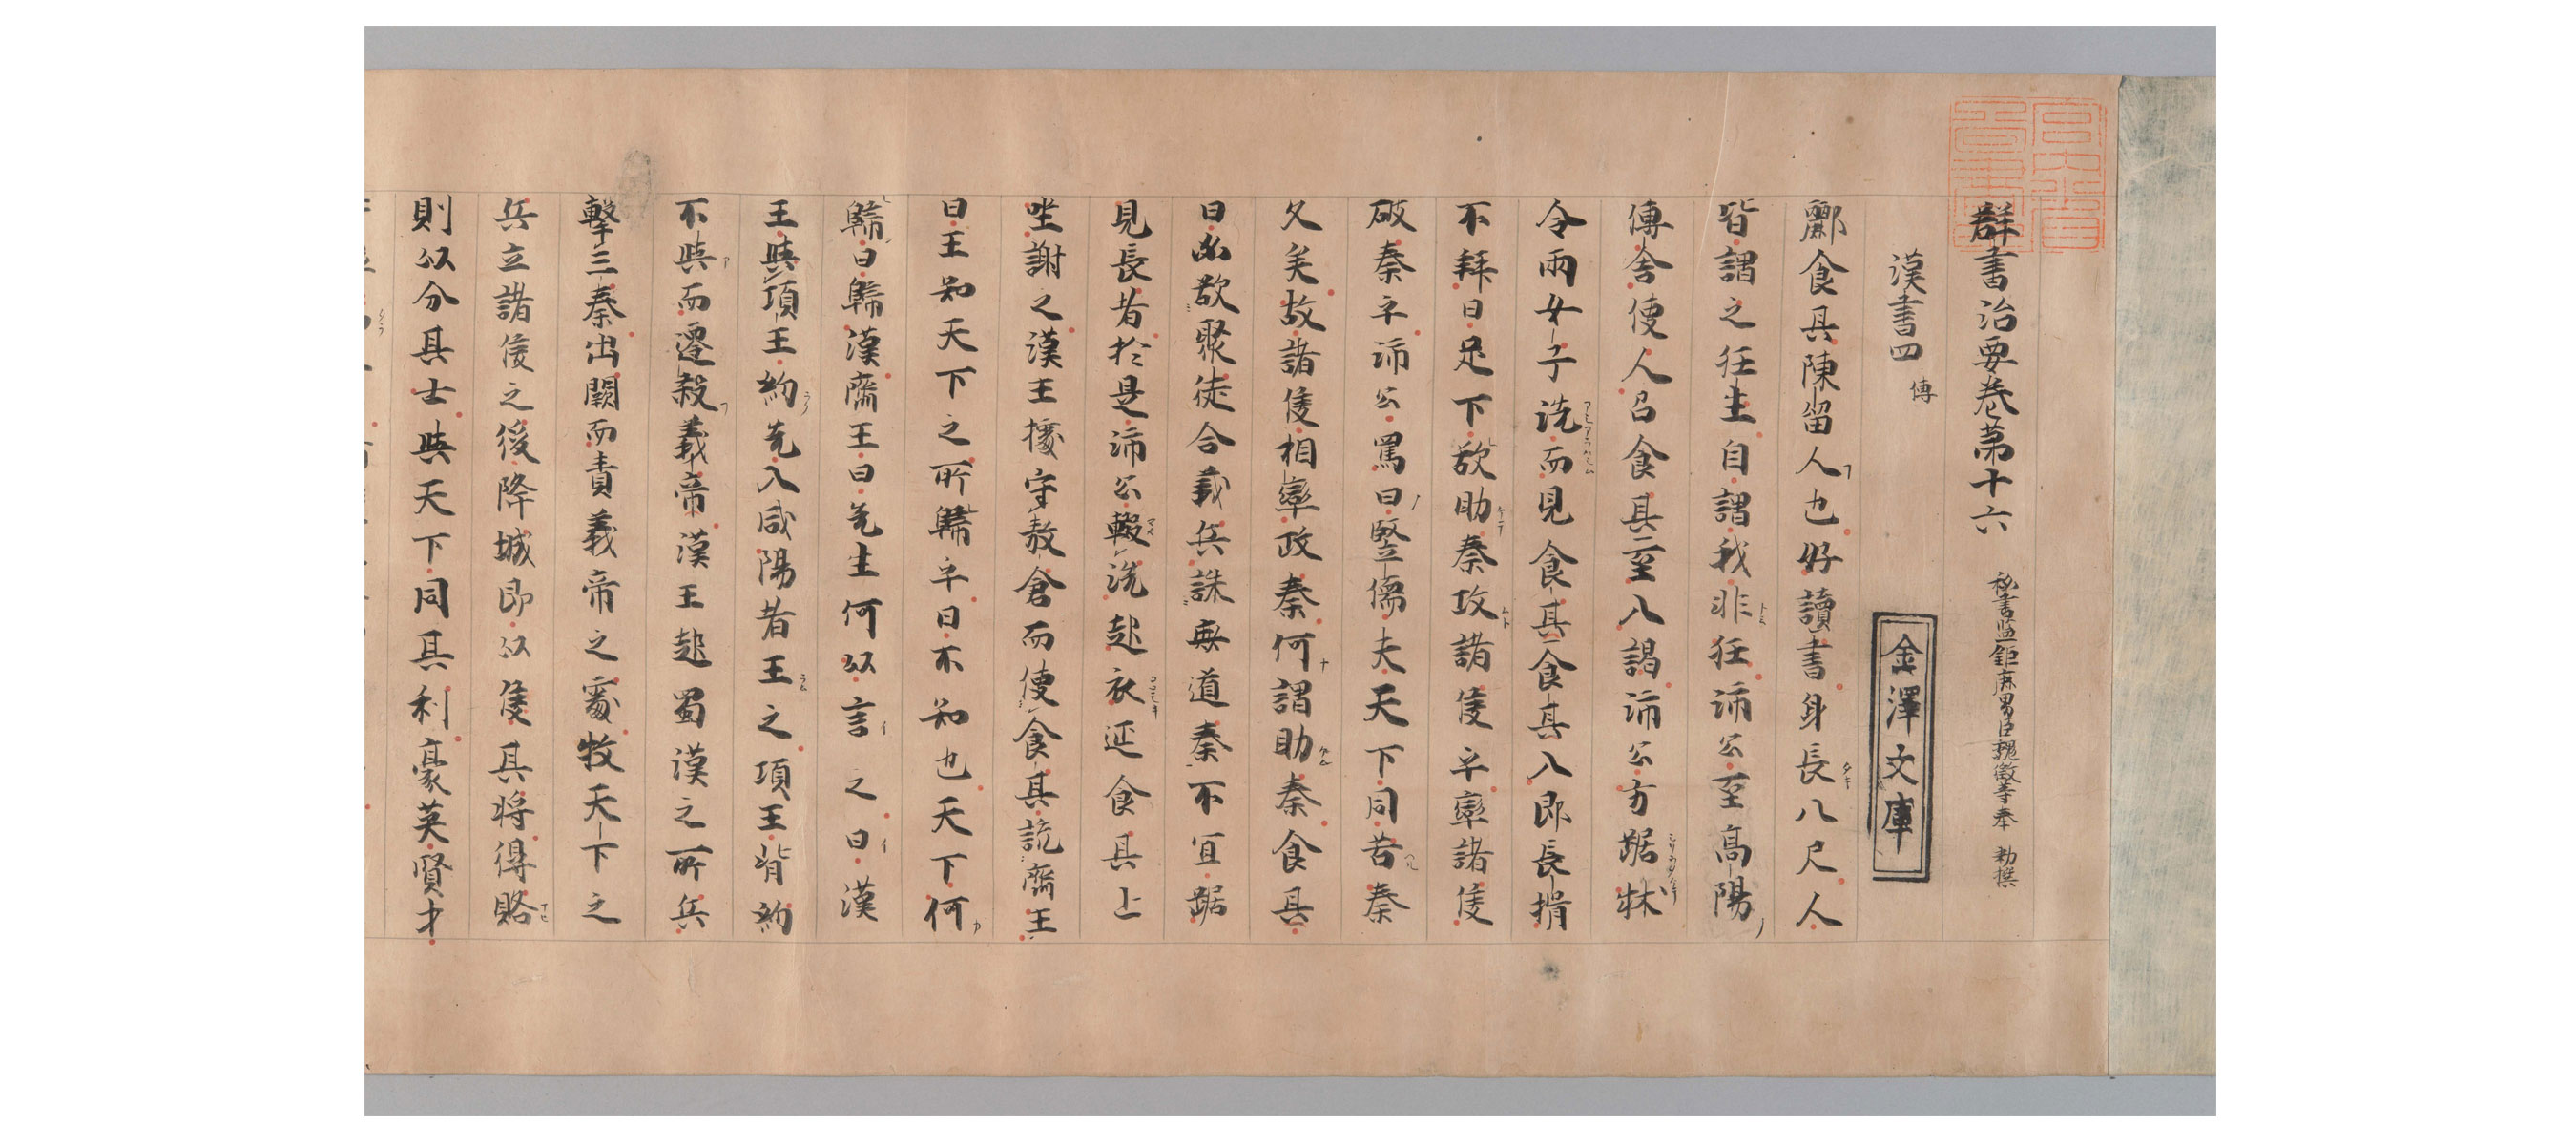 群書治要卷第十六 秘書監鉅鹿男臣魏徵等奉 勅撰
漢書四 傳
金澤文庫
酈食其陳留人也好讀書身長八尺人
皆謂之狂生自謂我非狂沛公至高陽
傳舍使人召食其至入謁沛公方踞牀
令兩女子洗而見食其食其入即長揖
不拜曰足下欲助秦攻諸侯乎率諸侯
破秦乎沛公罵曰豎儒夫天下同苦秦
久矣故諸侯相率攻秦何謂助秦食其
曰必欲聚徒合義兵誅無道秦不宜踞
見長者於是沛公輟洗起衣延食其上
坐謝之漢王據守敖倉而使食其說齊王
曰王知天下之所歸乎曰不知也天下何
歸曰歸漢齊王曰先生何以言之曰漢
王與項王約先入咸陽者王之項王背約
不與而遷殺義帝漢王起蜀漢之所兵
擊三秦出關而責義帝之處收天下之
兵立諸侯之後降城即以侯其將得賂
則以分其士與天下同其利豪英賢才